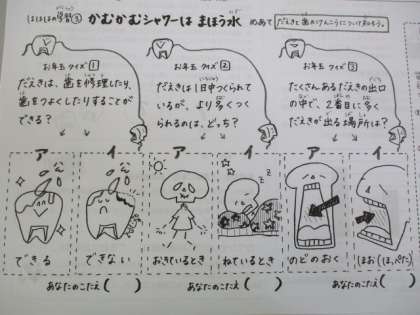 ほねほねの学習③ かむかむシャワーは まほう水 めあて だえきと歯のけんこうについて知ろう。
お年玉クイズ1
だえきは、歯を修理したり、
歯をつよくしたりすることが
できる?
お年玉クイズ2
だえきは1日中つくられて
いるが、より多くつく
られるのは、どっち?
お年玉クイズ3
たくさんあるだえきの出口
の中で、2番目に多く
だえきが出る場所は?
ア イ
ア イ
ア イ
できる
できない
おきているとき
ねているとき
のどのおく
ほお(ほっぺた)
あなたのこたえ( )
あなたのこたえ( )
あなたのこたえ( )